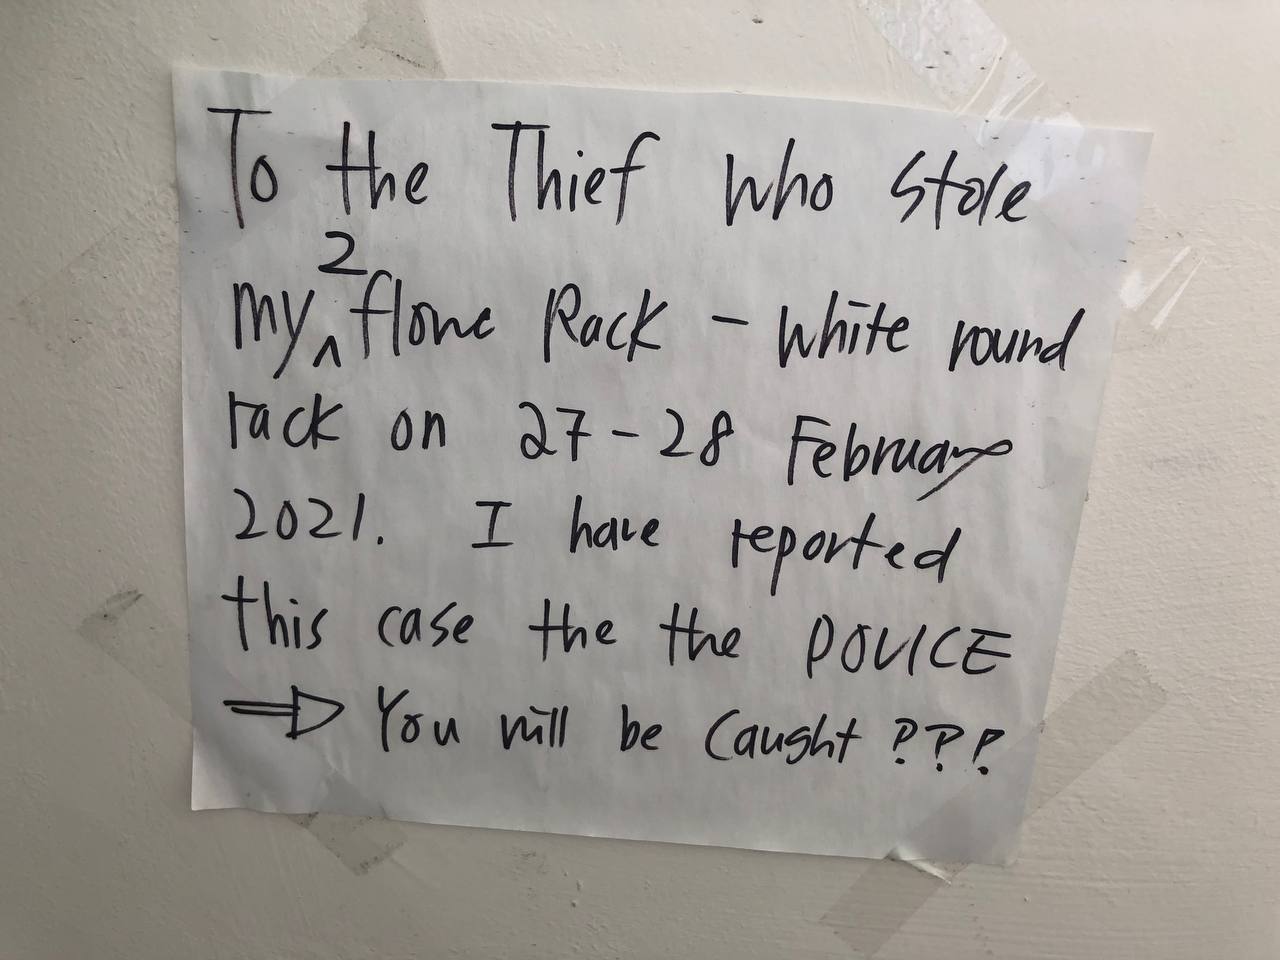 To the Thief who stole
my ^ 2 flone Rack - white round
rack on 27-28 February
2021. I have reported
this case the the POLICE
⇒ You will be Caught ???